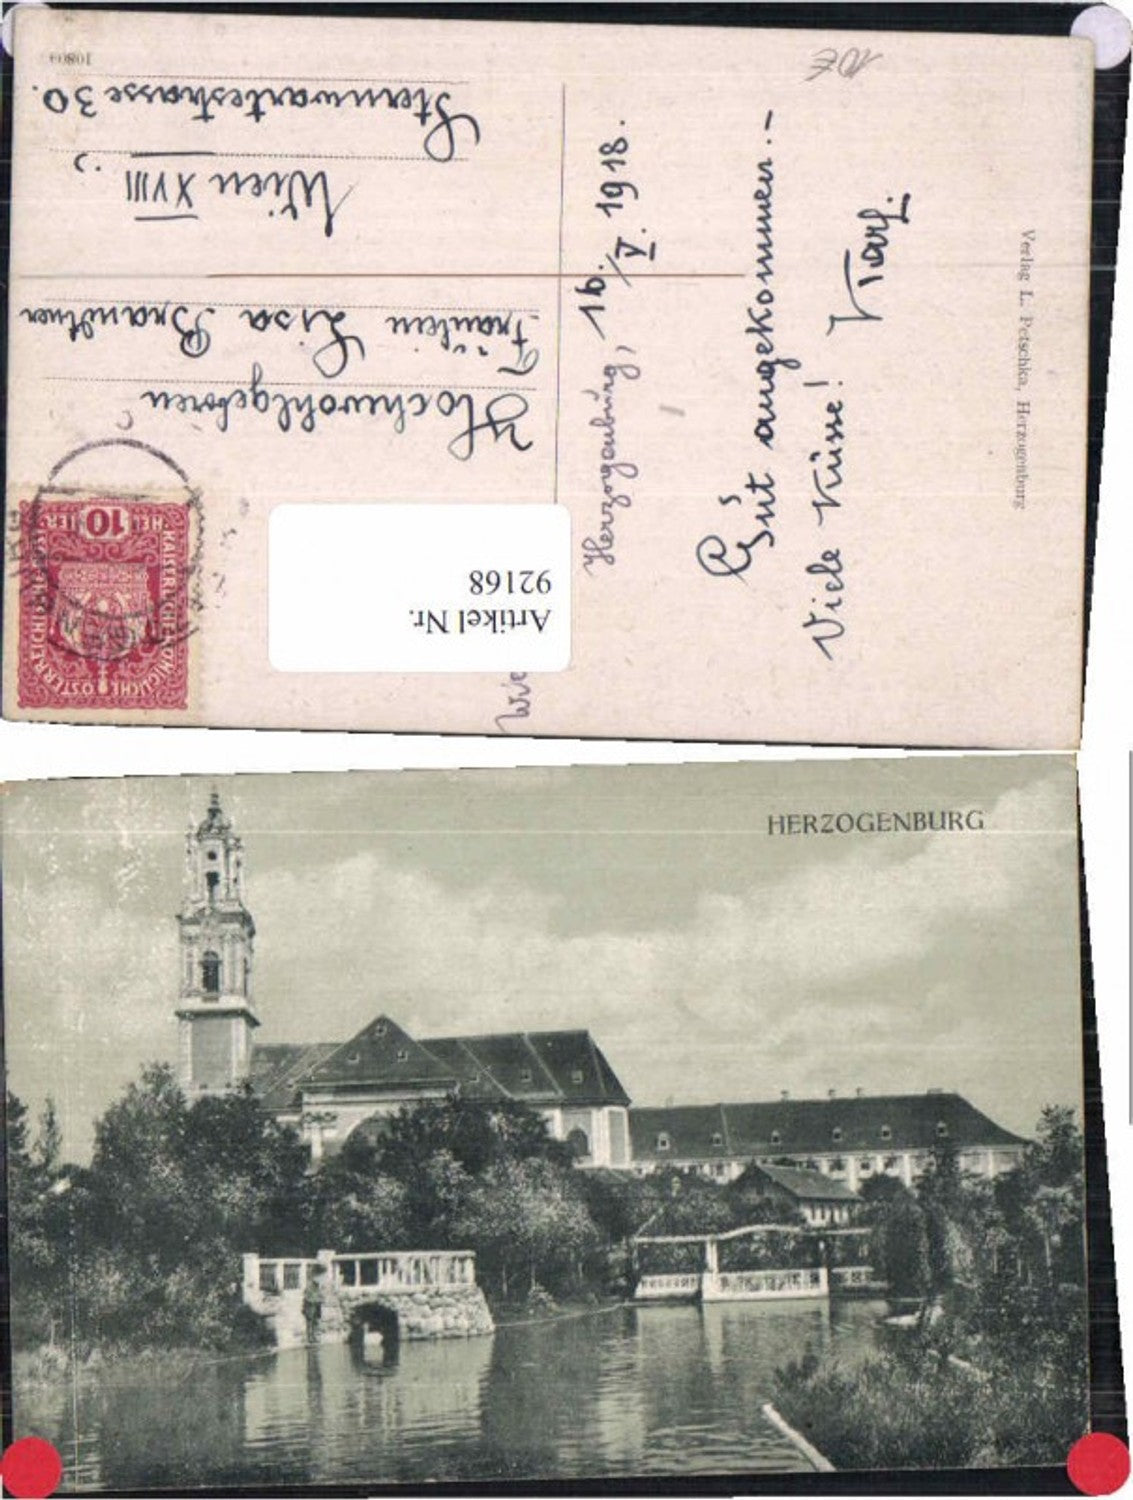 Hochwohlgeboren
Fräulein Lisa Brandtner
Wien XVIII
Sternwartestrasse 30.
Herzogenburg, 16./V. 1918.
Gut angekommen.-
Viele Küsse!
Verlag L. Petschka, Herzogenburg
10 €
KAISERLICHE KÖNIGLICHE ÖSTERREICHISCHE
HELLER 10
Artikel Nr.
92168
HERZOGENBURG